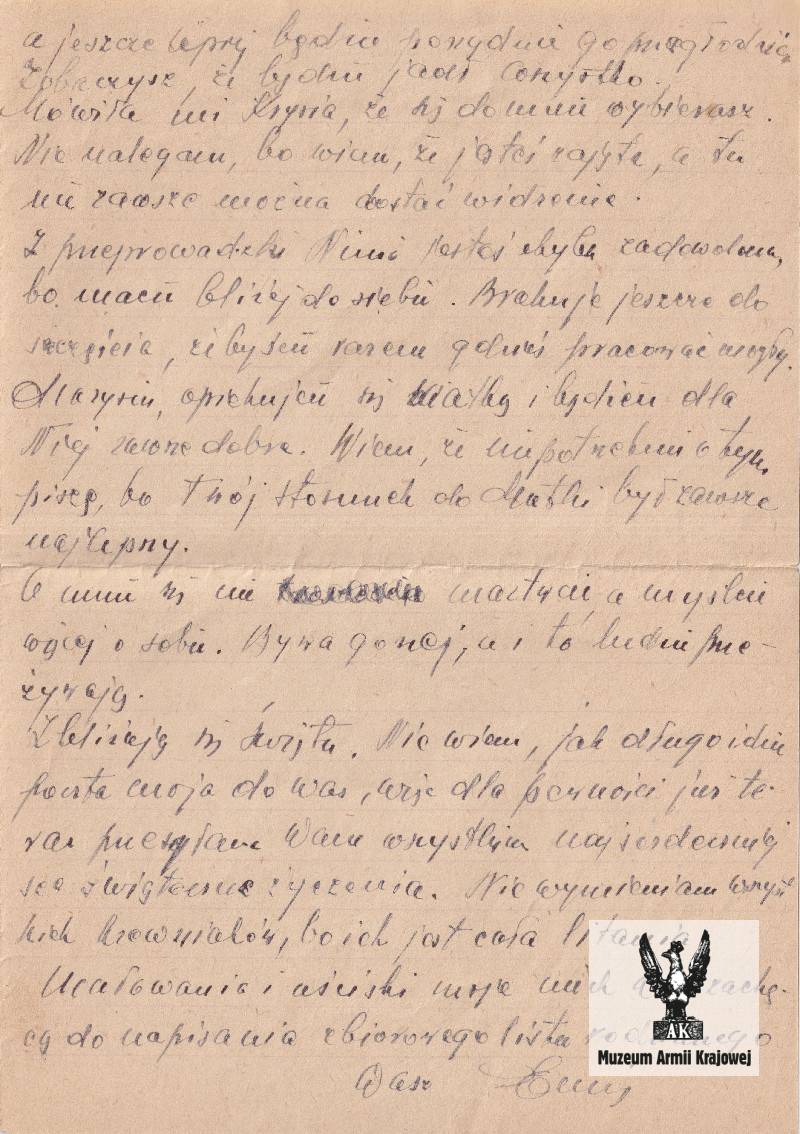 a jeszcze lepiej będzie porządnie go
Zobaczysz, że będzie jadł wszystko.
Mówiła mi Krysia, że się do mnie wybierasz.
Nie nalegam, bo wiem, że jesteś zajęta, a tu
nie zawsze można dostać widzenie.
Z przeprowadzki Niusi jesteś chyba zadowolona,
bo macie bliżej do siebie. Brakuje jeszcze do
szczęścia, żebyście razem gdzieś pracować mogły.
Marysiu, opiekujcie się Matką i bądźcie dla
Niej zawsze dobre. Wiem, że niepotrzebnie o tym
piszę, bo twój stosunek do Matki był zawsze
najlepszy.
O mnie się nie martwcie, a myślcie
więcej o sobie. Bywa gorzej, a i to ludzie prze-
żywają.
Zbliżają się święta. Nie wiem, jak długo idzie
poczta moja do Was, więc dla pewności już te-
raz przesyłam Wam wszystkim najserdeczniej
sze świąteczne życzenia. Nie wymieniam wszyst
kich krewniaków, bo ich jest cała litania
Ucałowania i uściski moje niech zachę-
cą do napisania zbiorowego listu rodzinnego
Wasz
AK
Muzeum Armii Krajowej